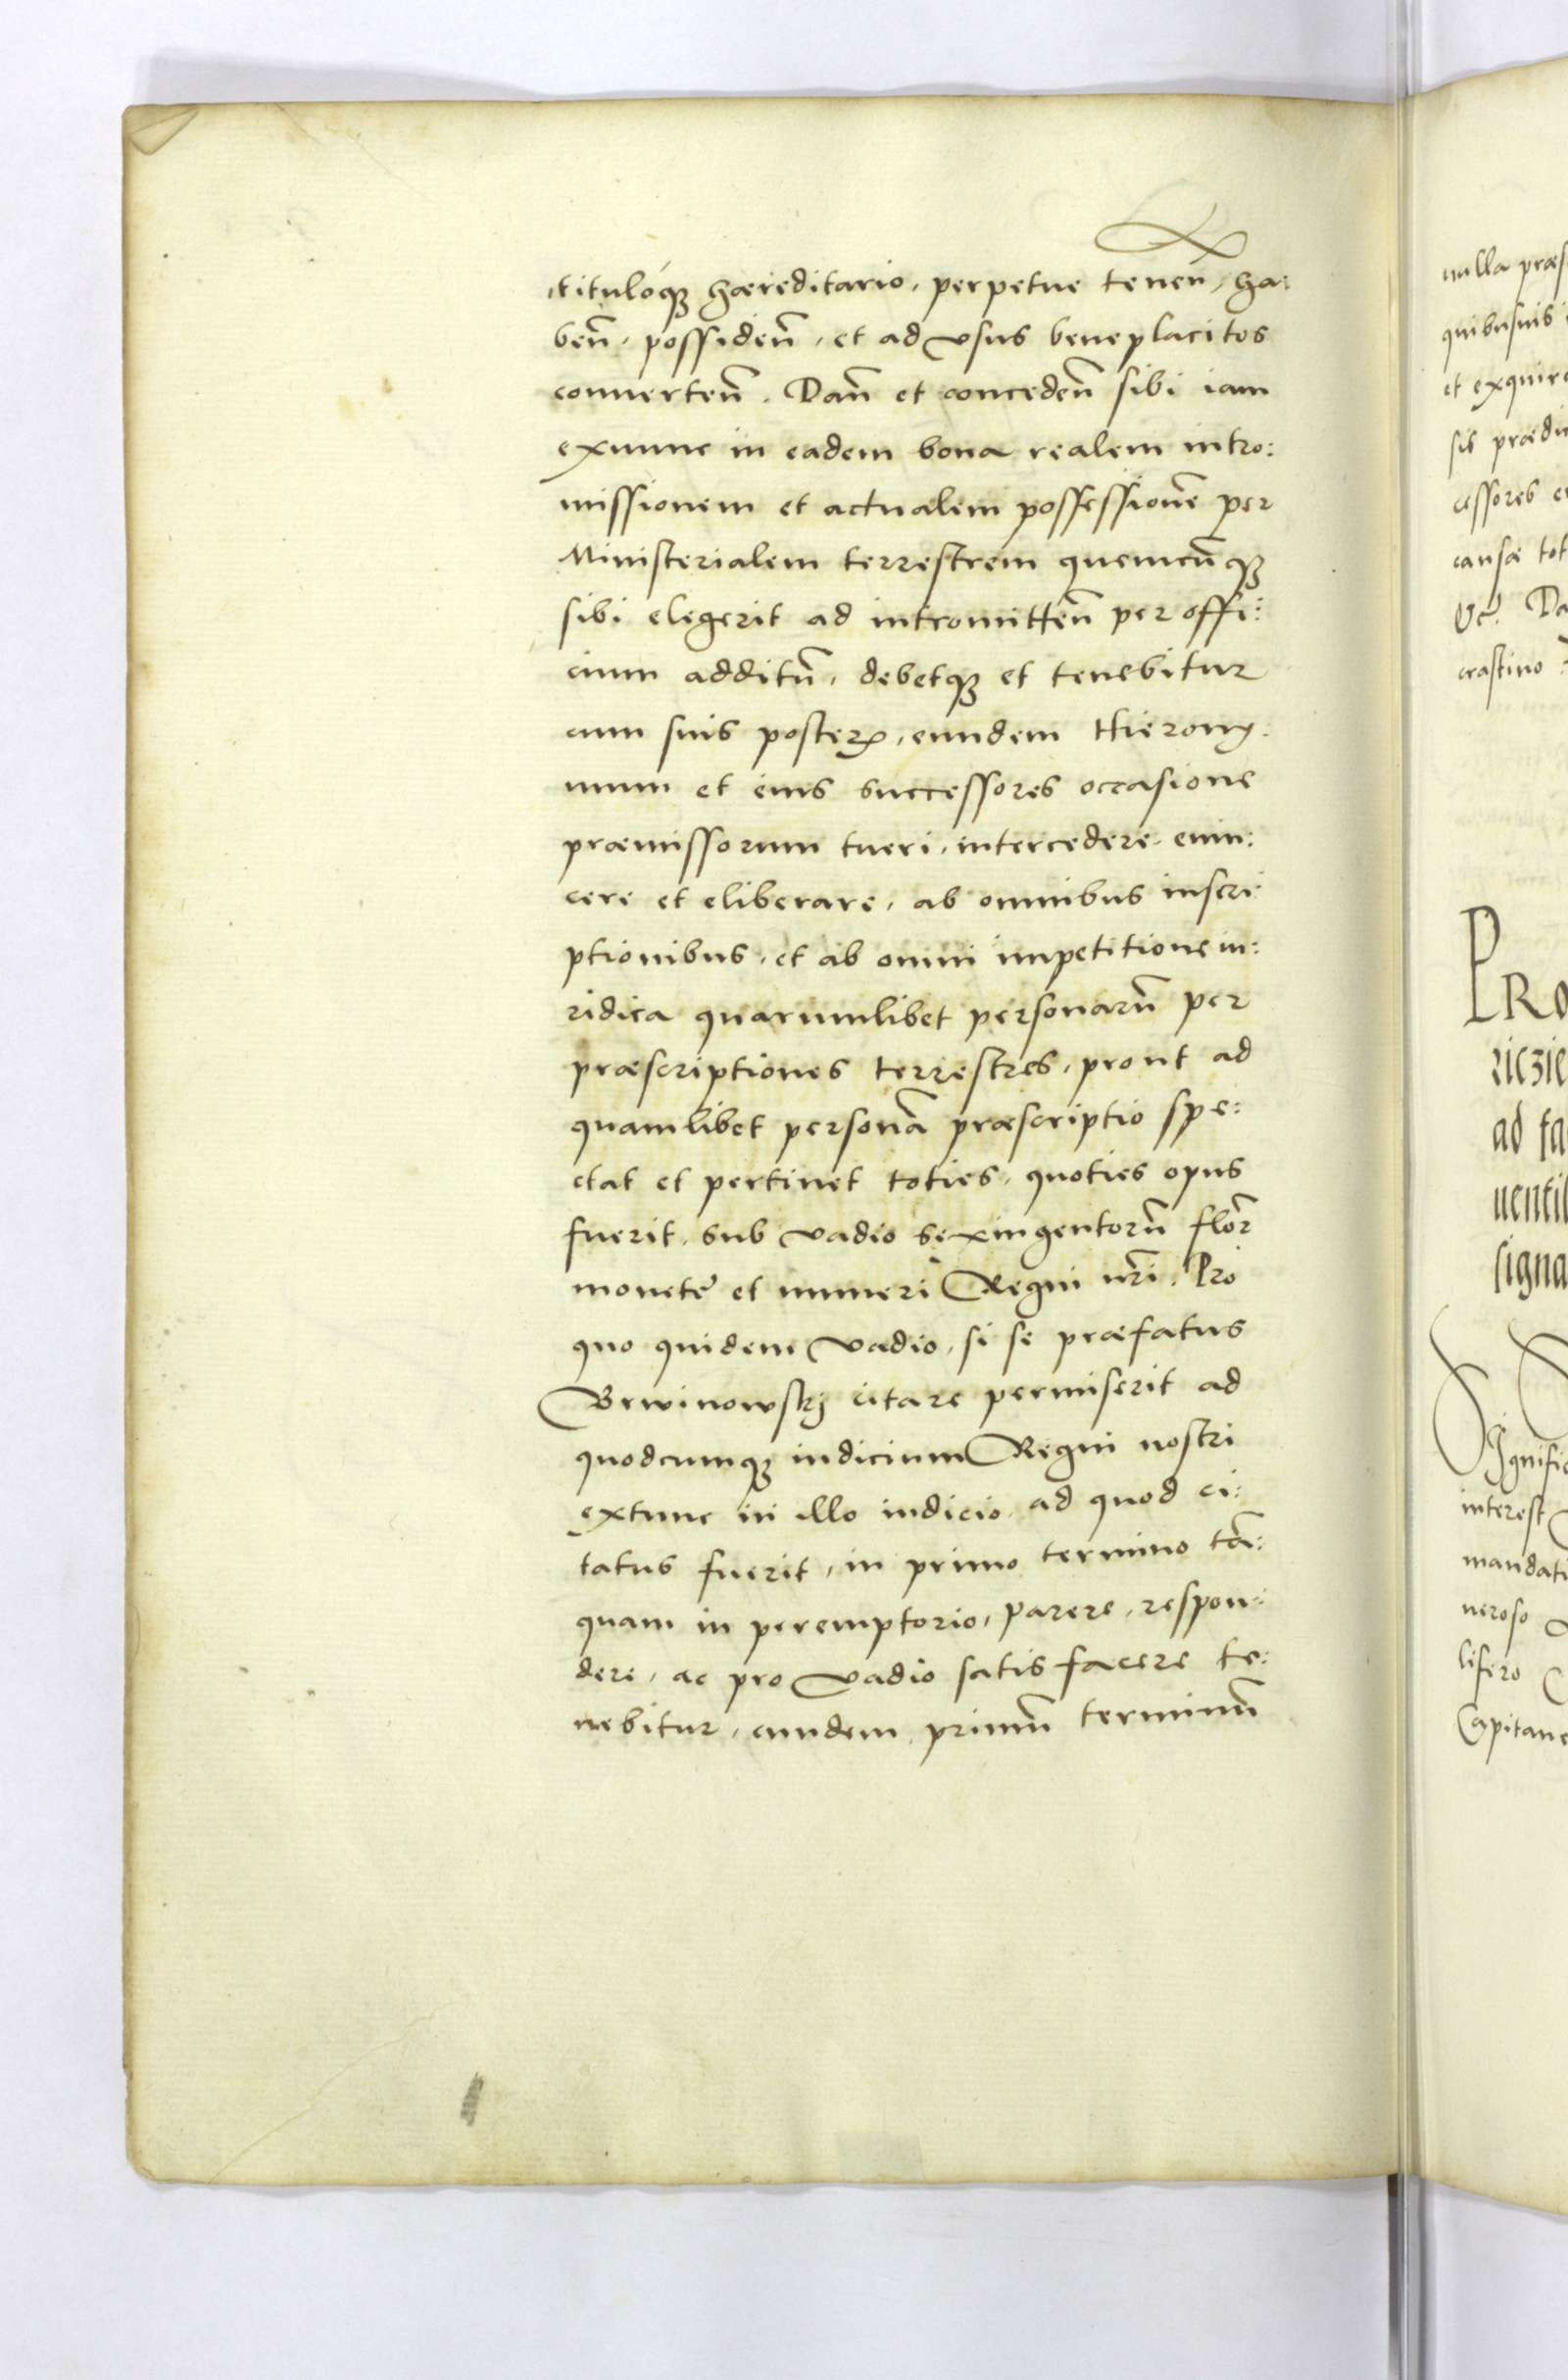 tituloq3 haereditario, perpetue tenen̄, ha:
ben̄, possiden̄, et ad vsus beneplacitos
conuerten̄. Dan̄ et conceden̄ sibi iam
exnunc in eadem bona realem intro:
missionem et actualem possessionē per
Ministerialem terrestrem quemcun̄q3
sibi elegerit ad intromitten̄ per offi:
cium additū, debetq3 et tenebitur
cum suis poster, eundem Hierony:
mum et eius successores occasione
praemissorum tueri, intercedere, euin:
cere et eliberare, ab omnibus inscri
ptionibus, et ab omni impetitione iu:
ridica quarumlibet personarū per
praescriptiones terrestres, prout ad
quamlibet personā praescriptio spe:
ctat et pertinet toties, quoties opus
fuerit, sub vadio sexingentorū flor̄
monete et numeri Regni nr̄i. Pro
quo quidem vadio, si se praefatus
Brwinowskij citare permiserit ad
quodcumq3 iudicium Regni nostri
extunc in illo iudicio, ad quod ci:
tatus fuerit, in primo termino tā:
quam in peremptorio, parere, respon:
dere, ac pro vadio satis facere te:
nebitur, eundem primū terminū
nulla praes
quibusuis
et exquire
sis praedi
cessores
causae tot
Da
crastino
PRO
riczie
ad fa
uenti
signa
Signific
interest
mandati
neroso
lifero
Capitane